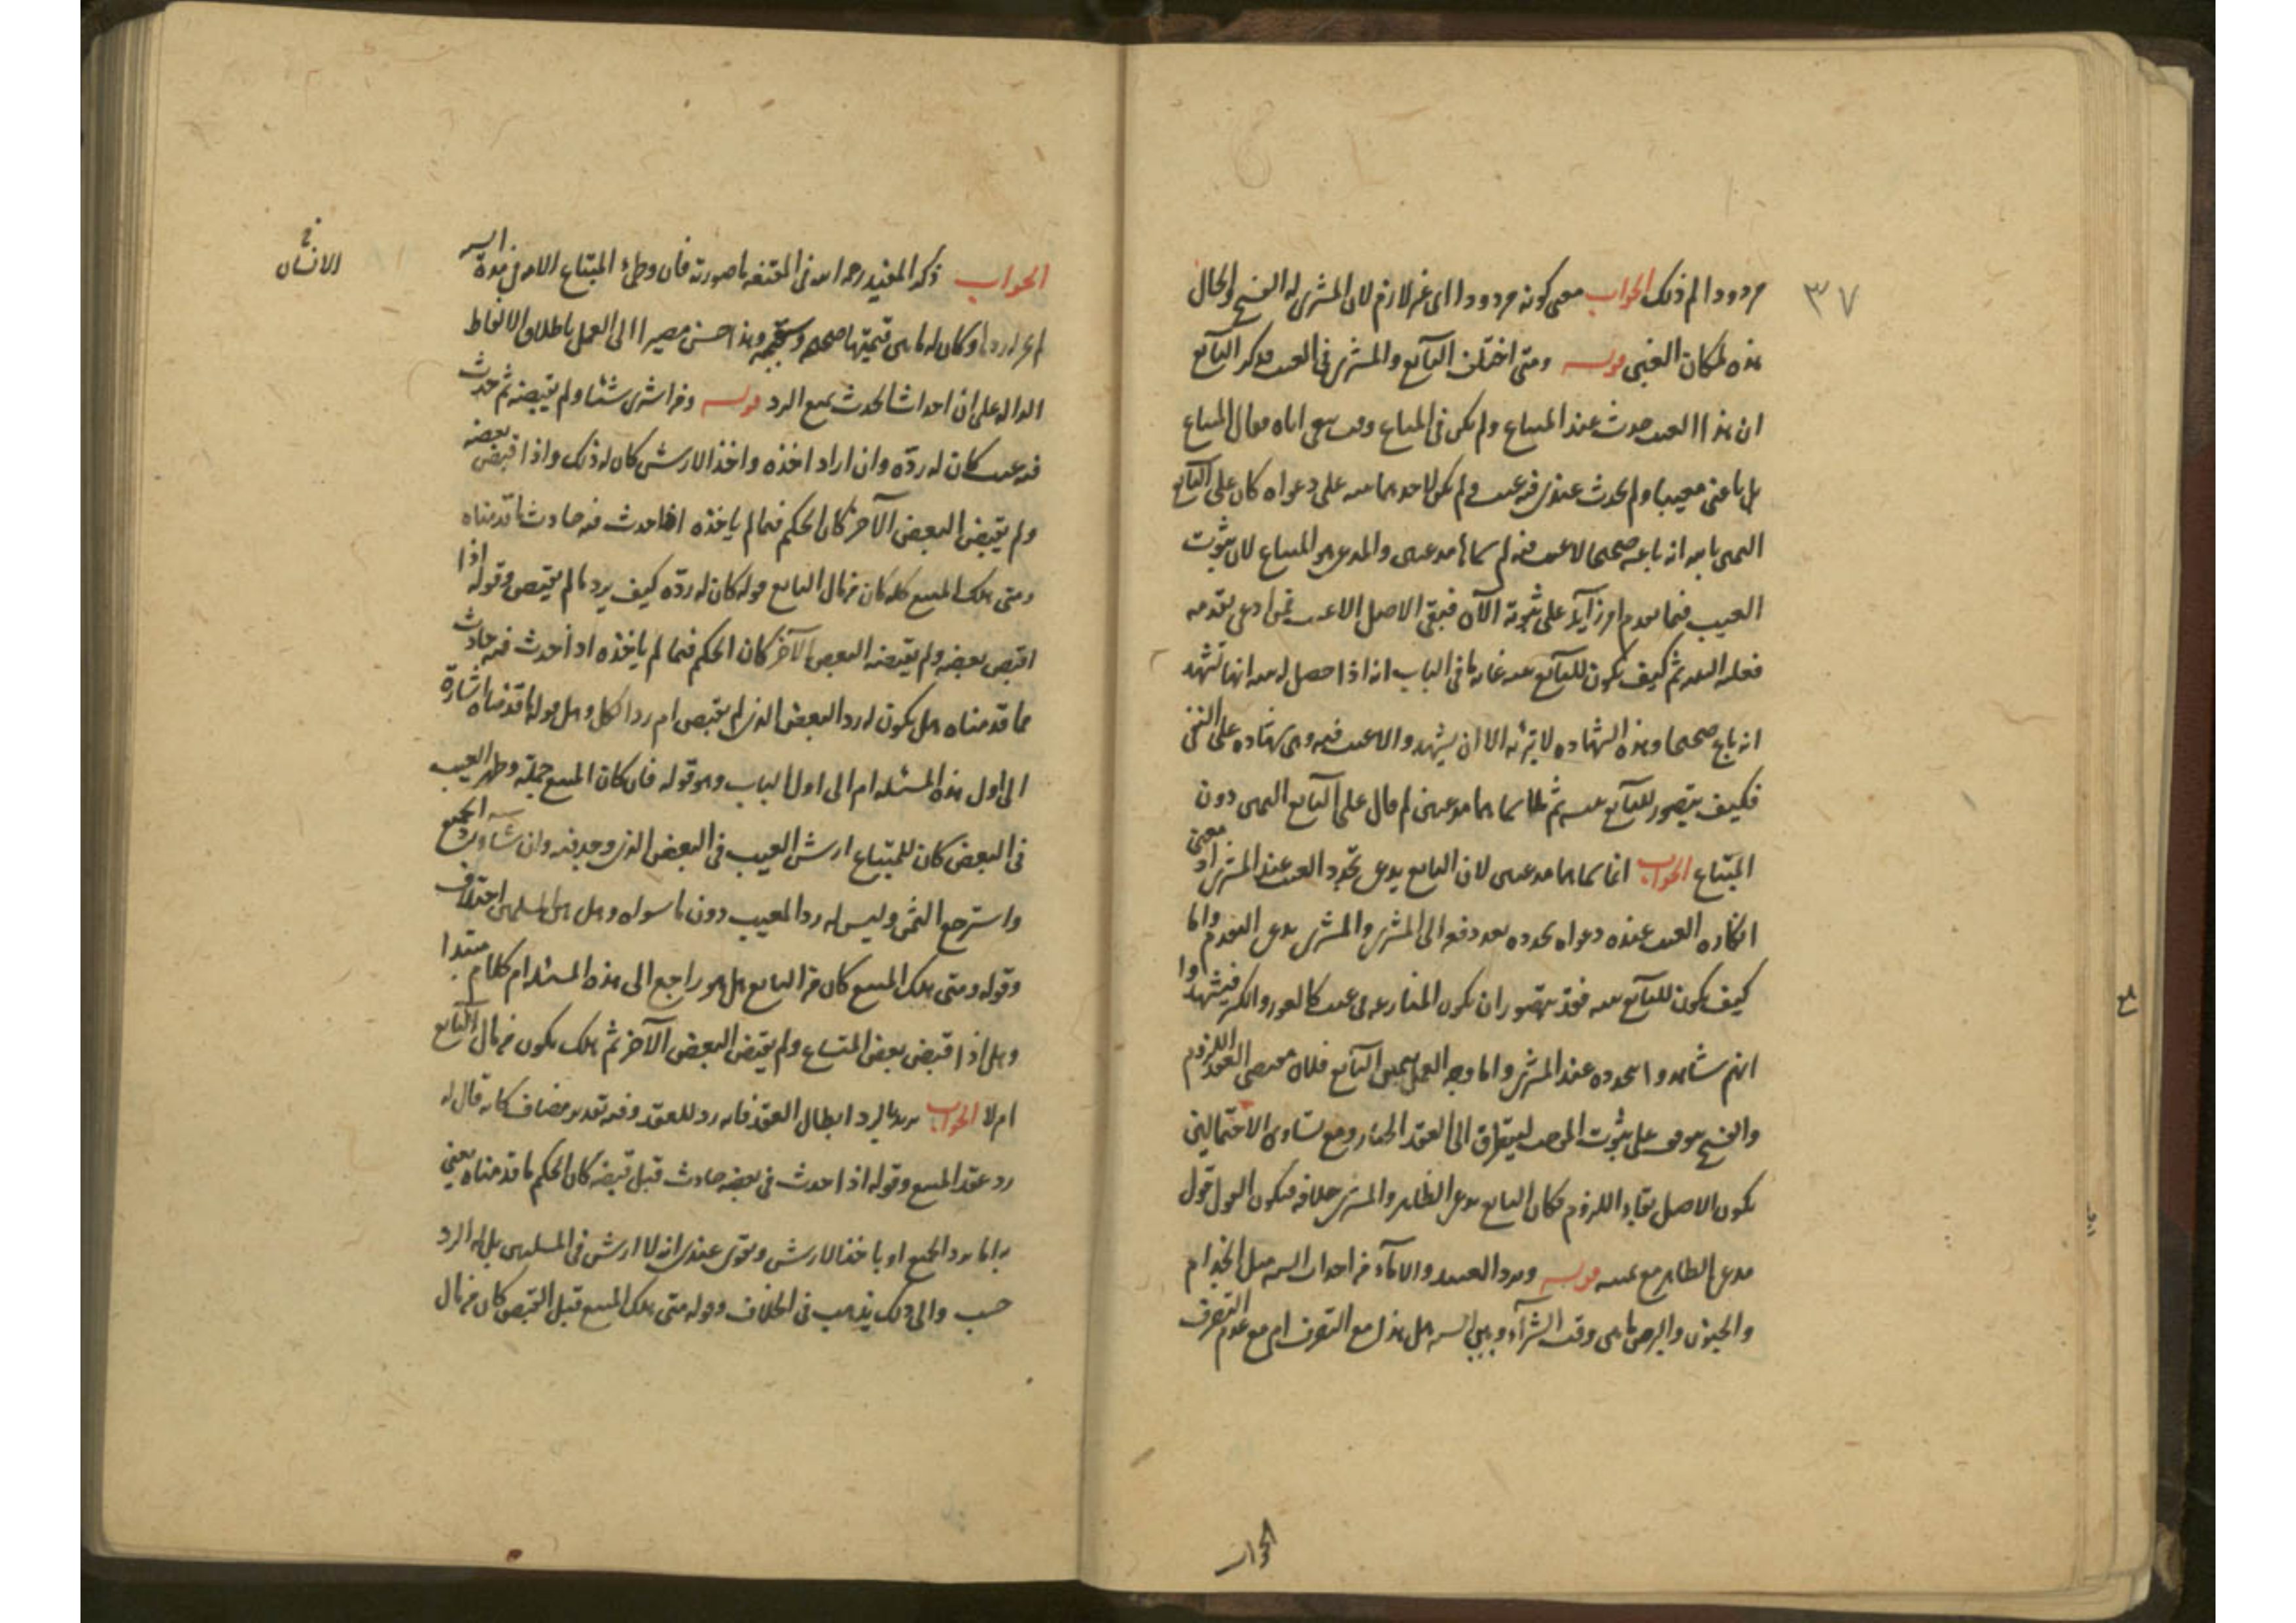 ٣٧
مردودا لم ذلك الجواب معنى كونه مردودا اى غير لازم لان المشترى له الفسخ والحال
هذه لمكان الغبن قوله ومتى اختلف البآئع والمشترى فى العيب فذكر البآئع
ان هذا العيب حدث عند المبتاع ولم يكن فى المتاع وقت بيعى اياه فقال المبتاع
بل باعنى معيبا ولم يحدث عندى فيه عيب ولم يكن لاحدهما بينه على دعواه كان على البآئع
اليمين بالله انه باعه صحيحا لا عيب فيه لم سماهما مدعيين والمدعى هو المبتاع لان ثبوت
العيب فيما تقدم امر زآيد على ثبوته الآن فيبقى الاصل الا عيب فمن ادعى تقدمه
فعليه البينه ثم كيف يكون للبآئع بينه غاية ما فى الباب انه اذا حصل له بينه انها تشهد
انه باع صحيحا وهذه الشهاده لا تبرئه الا ان يشهدوا لا عيب فيه وهى شهاده على النفى
فكيف يتصور للبآئع بينه ثم لما سماهما مدعيين لم قال على البآئع اليمين دون
المبتاع الجواب انما سماهما مدعيين لان البايع يدعى تجدد العيب عند المشترى اذ معنى
انكاره العيب عنده دعواه تجدده بعد دفعه الى المشترى والمشترى يدعى التقدم واما
كيف يكون للبآئع بينه فقد يتصور ان يكون المنازعه فى عيب كالعور والكسر فيشهدوا
انهم شاهدوا تجدده عند المشترى واما وجه العمل بيمين البآئع فلان مقتضى العقد اللزوم
والفسخ موقوف على ثبوت الموجب ليتطرق الى العقد الخيار ومع تساوى الاحتمالين
يكون الاصل بقاء اللزوم فكان البايع يدعى الظاهر والمشترى خلافه فيكون القول قول
مدعى الظاهر مع يمينه قوله ويرد العبيد والامآء من احداث السنه مثل الجذام
والجنون والبرص ما بين وقت الشرآء وبين السنه هل هذا مع التصرف ام مع عدم التصرف
الجواب
الجواب ذكر المفيد رحمه الله فى المقنعه ما صورته فان وطئ المبتاع الامه فى مدة السنه
لم يجز له ردها وكان له ما بين قيمتها صحيحه وسقيمه وهذا حسن مصيرا الى العمل باطلاق الالفاظ
الداله على ان احداث الحدث يمنع الرد قوله ومن اشترى شئا ولم يقبضه ثم حدث
فيه عيب كان له ردّه وان اراد اخذه واخذ الارش كان له ذلك واذا قبض بعضه
ولم يقبض البعض الآخر كان الحكم فيما لم ياخذه اذا حدث فيه حادث ما قدمناه
ومتى هلك المبيع كله كان من مال البايع قوله كان له ردّه كيف يرد ما لم يقبض وقوله اذا
اقبض بعضه ولم يقبضه البعض الآخر كان الحكم فيما لم ياخذه اذا حدث فيه حادث
ما قدمناه هل يكون له رد البعض الذى لم يقبض ام رد الكل وهل قوله ما قدمناه اشارة
الى اول هذه المسئله ام الى اول الباب وهو قوله فان كان المبيع جملة وظهر العيب
فى البعض كان للمبتاع ارش العيب فى البعض الذى وجد فيه وان شاء رد الجميع
واسترجع الثمن وليس له رد المعيب دون ما سواه وهل بين المسئلتين اختلاف
وقوله ومتى هلك المبيع كان من البايع هل هو راجع الى هذه المسئله ام كلام مبتدا
وهل اذا قبض بعض المتاع ولم يقبض البعض الآخر ثم هلك يكون من مال البآئع
ام لا الجواب يريد بالرد ابطال العقد فانه رد للعقد وفيه تقدير مضاف كانه قال له
رد عقد المبيع وقوله اذا حدث فى بعضه حادث قبل قبضه كان الحكم ما قدمناه يعنى
به اما يرد الجميع او ياخذ الارش ويقوى عندى انه لا ارش فى المسئلتين بل له الرد
حسب والى ذلك يذهب فى الخلاف وقوله متى هلك المبيع قبل القبض كان من مال
الانسان